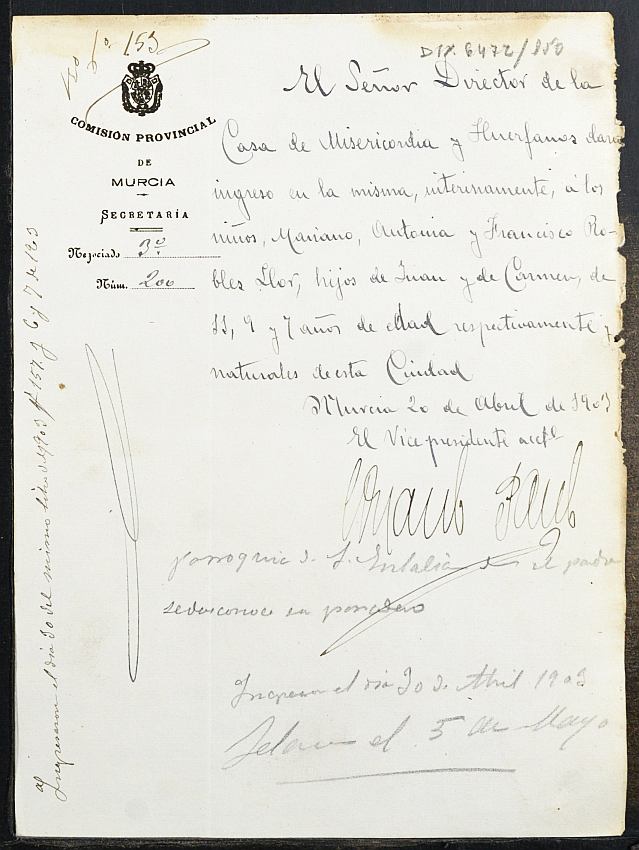 fo. 153
DIP. 6472/850
COMISIÓN PROVINCIAL
DE
MURCIA
SECRETARÍA
Negociado 3º.
Núm. 200
El Señor Director de la
Casa de Misericordia y Huerfanos dará
ingreso en la misma, interinamente, á los
niños, Mariano, Antonia y Francisco Ro-
bles Llor, hijos de Juan y de Carmen, de
11, 9 y 7 años de edad respectivamente y
naturales de esta Ciudad
Murcia 20 de Abril de 1903
El Vicepresidente acctl
parroquia de S. Eulalia el padre
se desconoce su paradero
Ingresaron el dia 30 de Abril 1903
el 5 de Mayo
Ingresaron el dia 30 del mismo 1903 fº 157 y 6 y 7 de 1903